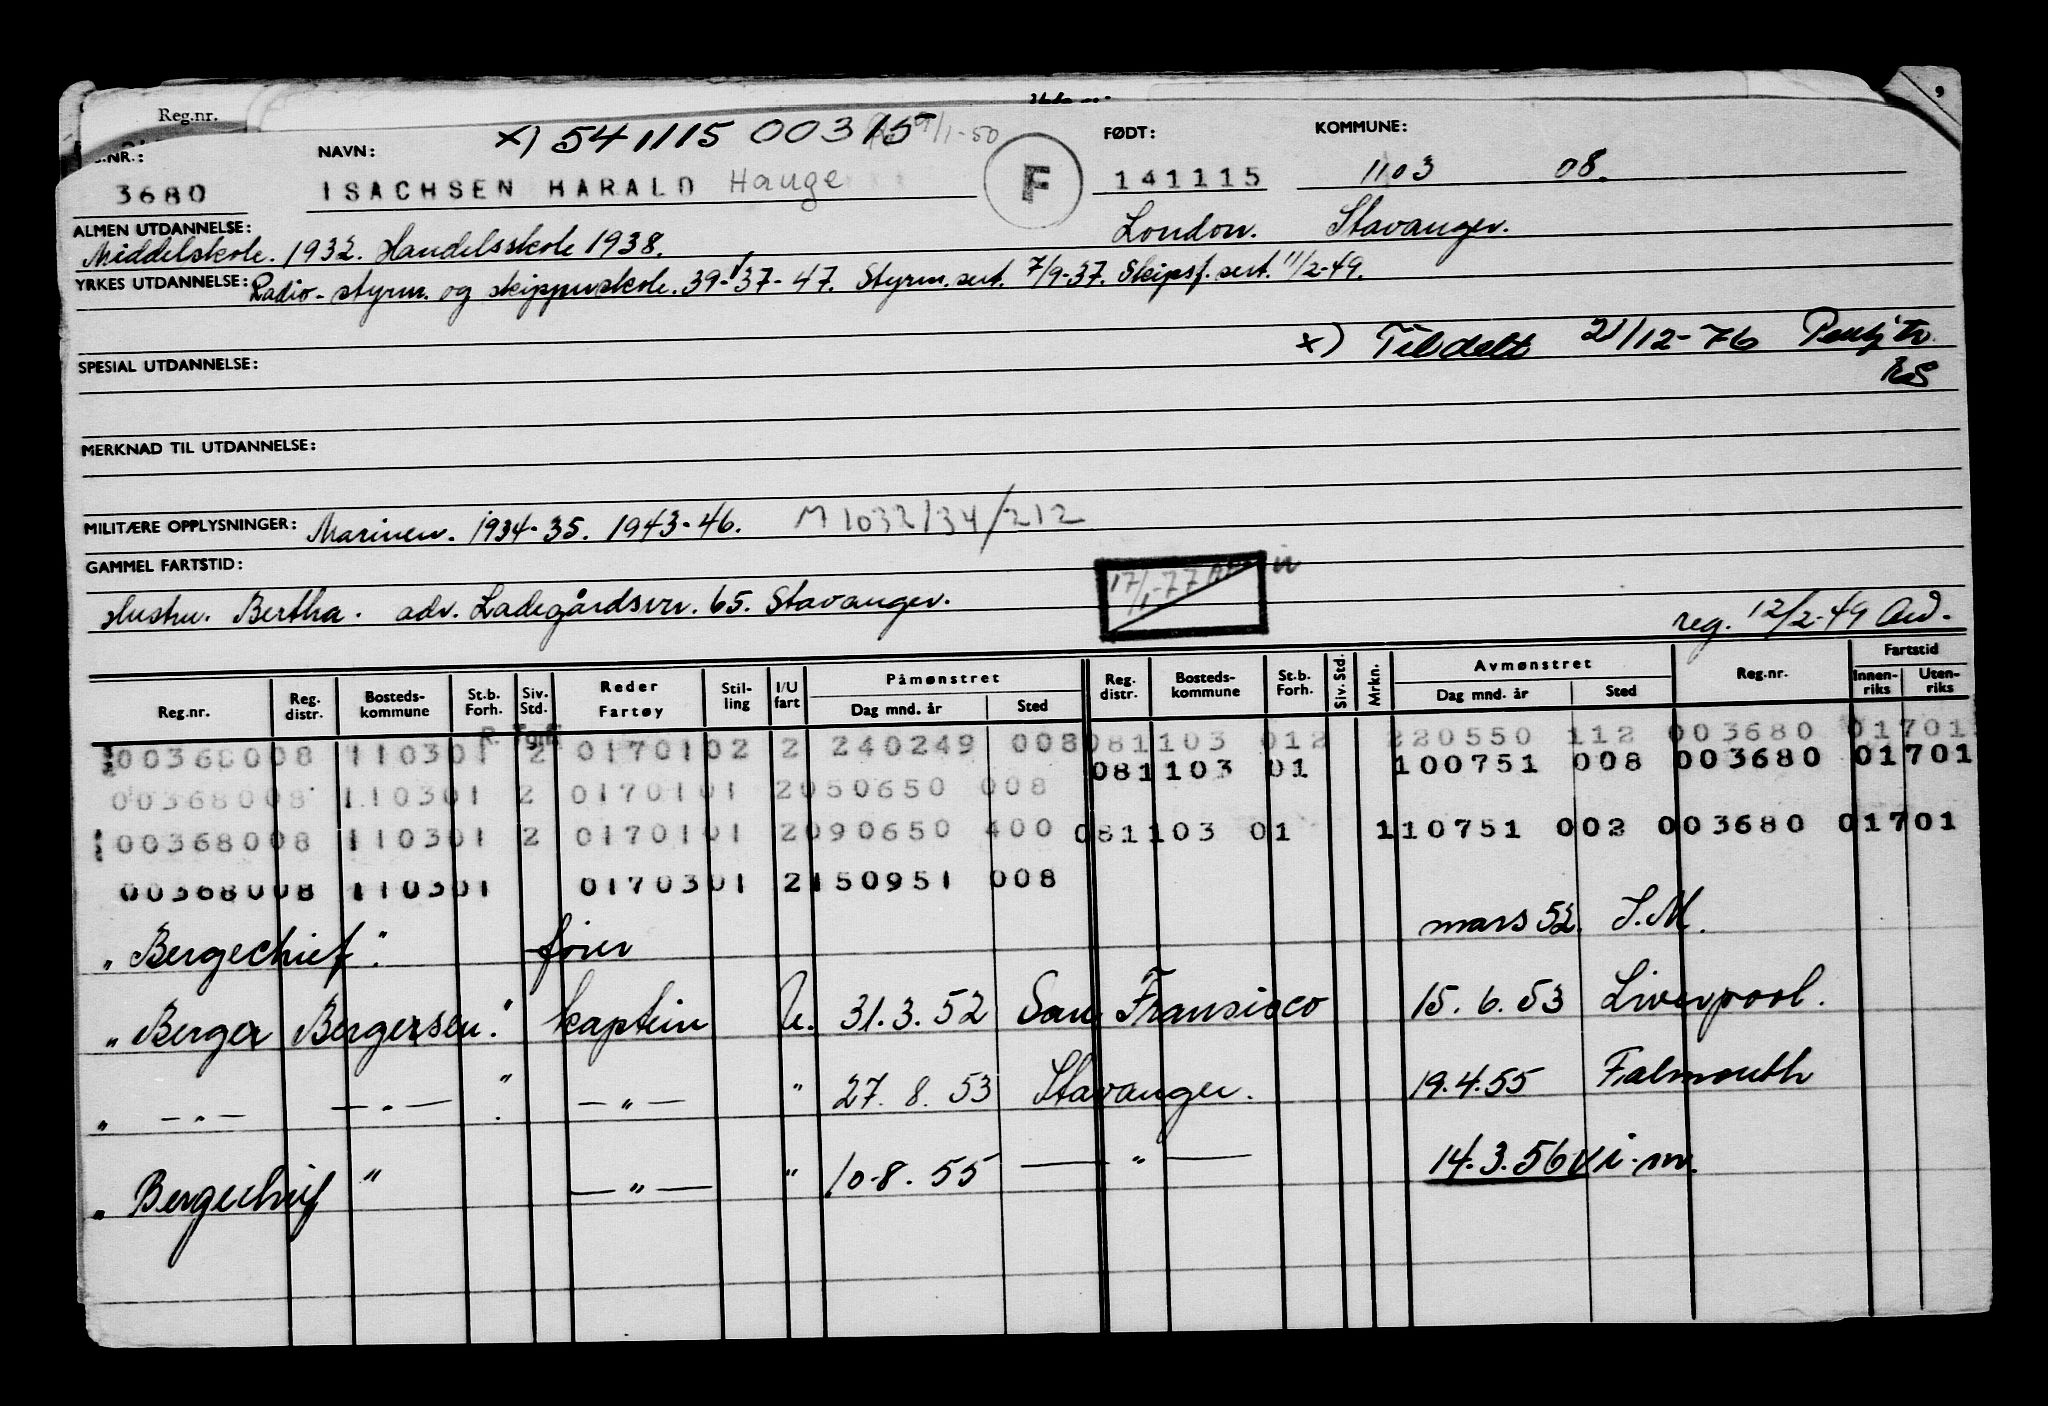 Reg.nr.
x) 541115 00315 9/1-50
.NR.: NAVN: FØDT: KOMMUNE:
3680 ISACHSEN HARALD Hauge F 141115 1103 08.
ALMEN UTDANNELSE: Middelskole. 1932. Handelsskole 1938. London. Stavanger.
YRKES UTDANNELSE: Radio- styrm. og skipperskole. 39-37-47. Styrm. sert. 7/9-37. Skipsf. sert. 11/2-49.
x) Tildelt 21/12-76 Pensj.tr.
SPESIAL UTDANNELSE: RS
MERKNAD TIL UTDANNELSE:
MILITÆRE OPPLYSNINGER: Marinen. 1934-35. 1943-46. M 1032/34/212
GAMMEL FARTSTID: 17/1-77
Hustru. Bertha. adr. Ladegårdsvn. 65. Stavanger. reg. 12/2-49
Reg.nr. Reg. distr. Bosteds- kommune St.b. Forh. Siv. Std. Reder Fartøy Stil- ling I/U fart Påmønstret Dag mnd. år Sted Reg. distr. Bosteds- kommune St.b. Forh. Siv. Std. Mrkn. Avmønstret Dag mnd. år Sted Reg.nr. Fartstid Innen- riks Uten- riks
00368008 110301 2 0170102 2 240249 008 081103 012 220550 112 003680 01701
081103 01 100751 008 003680 01701
00368008 110301 2 0170101 2050650 008
00368008 110301 2 0170101 2090650 400 081103 01 110751 002 003680 01701
00368008 110301 0170301 2150951 008
" Bergechief " fører mars 52. S.M.
" Berger Bergersen " kaptein U. 31.3.52 San Fransisco 15.6.53 Liverpool.
" -"- -"- " -"- " 27.8.53 Stavanger. 19.4.55 Falmouth
" Bergechief " -"- " 10.8.55 -"- 14.3.56 i.m.